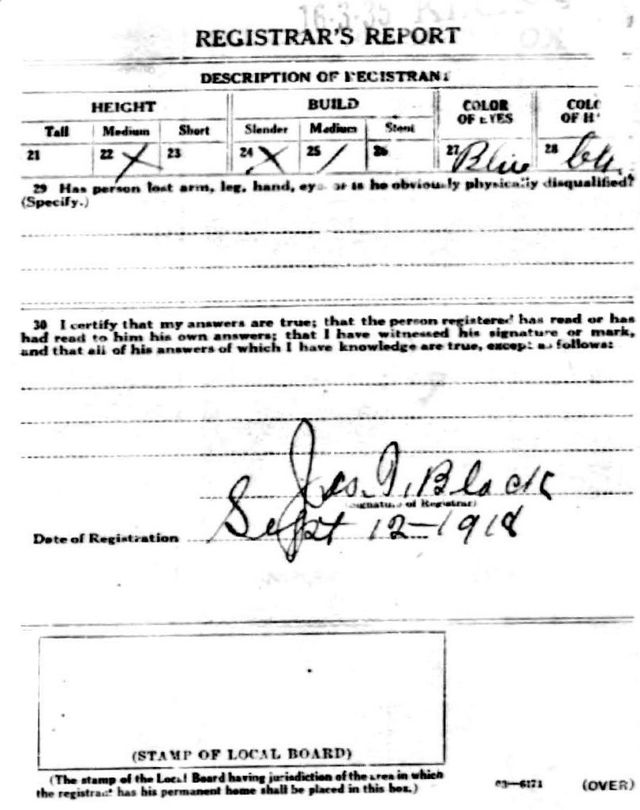 16-3-35
REGISTRAR'S REPORT
DESCRIPTION OF REGISTRANT
HEIGHT BUILD COLOR OF EYES COLO OF H
Tall Medium Short Slender Medium Stout
21 22 X 23 24 X 25 / 26 27 Blue 28
29 Has person lost arm, leg, hand, eye, or is he obviously physically disqualified?
(Specify.)
30 I certify that my answers are true; that the person registered has read or has
had read to him his own answers; that I have witnessed his signature or mark,
and that all of his answers of which I have knowledge are true, except as follows:
Jas. T. Black
(Signature of Registrar)
Date of Registration Sept 12-1918
(STAMP OF LOCAL BOARD)
(The stamp of the Local Board having jurisdiction of the area in which
the registrant has his permanent home shall be placed in this box.)
03—6171 (OVER)